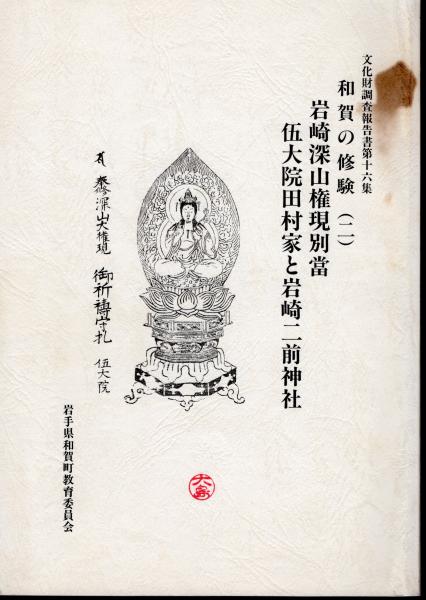 文化財調査報告書第十六集
和賀の修験（二）
岩崎深山権現別當
伍大院田村家と岩崎二前神社
奉修深山大権現
御祈禱守札
伍大院
岩手県和賀町教育委員会